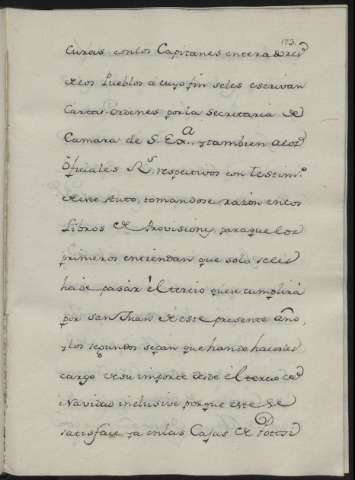 173.
Curas con los Capitanes enteradores
de los Pueblos a cuyo fin seles escrivan
Cartas Ordenes por la Secretaria de
Camara de S. Exa. y tambien a los
Oficiales Rs. respectivos con testimo.
de este Auto, tomandose razon en los
Libros de Provisiones, para que los
primeros entiendan que solo seles
ha de pasar el tercio que se cumplirá
por san Juan de este presente año,
y los segundos sepan que han de hacerse
cargo de su importe desde el tercio de
Navidad inclusive porque este se
satisface ya en las Cajas de Potosi